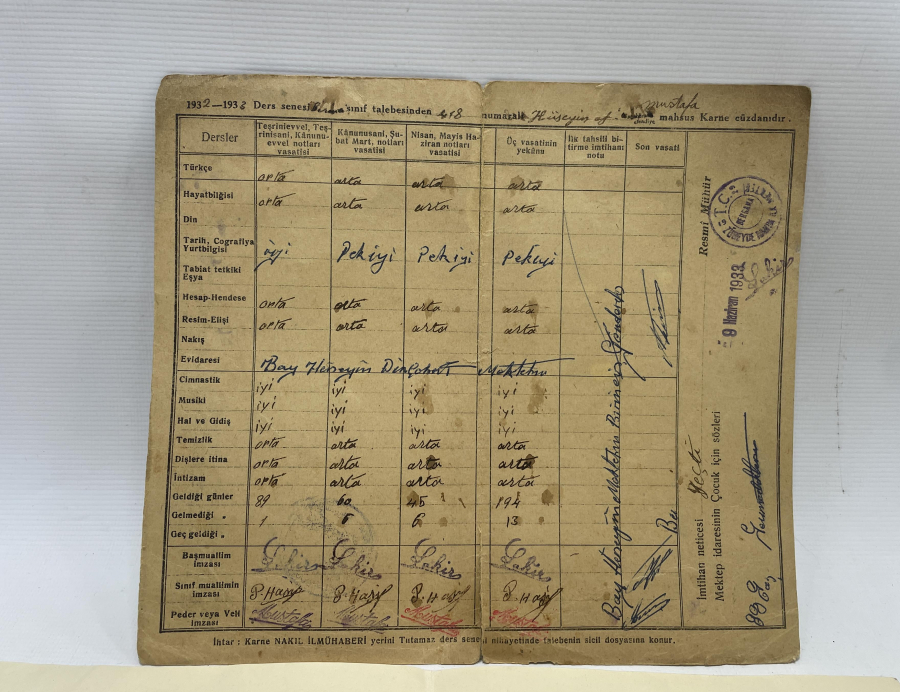 1932—1933 Ders senesi sınıf talebesinden 418 numaralı Hüseyin ef. Mustafa mahsus Karne cüzdanıdır.
Dersler
Teşrinievvel, Teşrinisani, Kânunuevvel notları vasatisi
Kânunusani, Şubat Mart, notları vasatisi
Nisan, Mayis Haziran notları vasatisi
Üç vasatinin yekûnu
İlk tahsili bitirme imtihanı notu
Son vasati
Türkçe orta orta orta orta
Hayatbilğisi orta orta orta orta
Din
Tarih, Cografiya Yurtbilgisi iyi Pekiyi Pekiyi Pekiyi
Tabiat tetkiki Eşya
Hesap-Hendese orta orta orta orta
Resim-Elişi orta orta orta orta
Nakış
Evidaresi
Bay Hüseyin Mektebin
Cimnastik iyi iyi iyi iyi
Musiki iyi iyi iyi iyi
Hal ve Gidiş iyi iyi iyi iyi
Temizlik orta orta orta orta
Dişlere itina orta orta orta orta
İntizam orta orta orta orta
Geldiği günler 89 60 45 194
Gelmediği „ 1 6 6 13
Geç geldiği „
Başmuallim imzası
Sınıf muallimin imzası
Peder veya Veli imzası Mustafa Mustafa Mustafa Mustafa
İhtar : Karne NAKIL İLMÜHABERİ yerini Tutamaz ders senesi nihayetinde talebenin sicil dosyasına konur.
Bay Hüseyin Mektebin
Resmi Mühür
T.C.
BERGAMA
9 Haziran 1933
İmtihan neticesi geçti
Mektep idaresinin Çocuk için sözleri